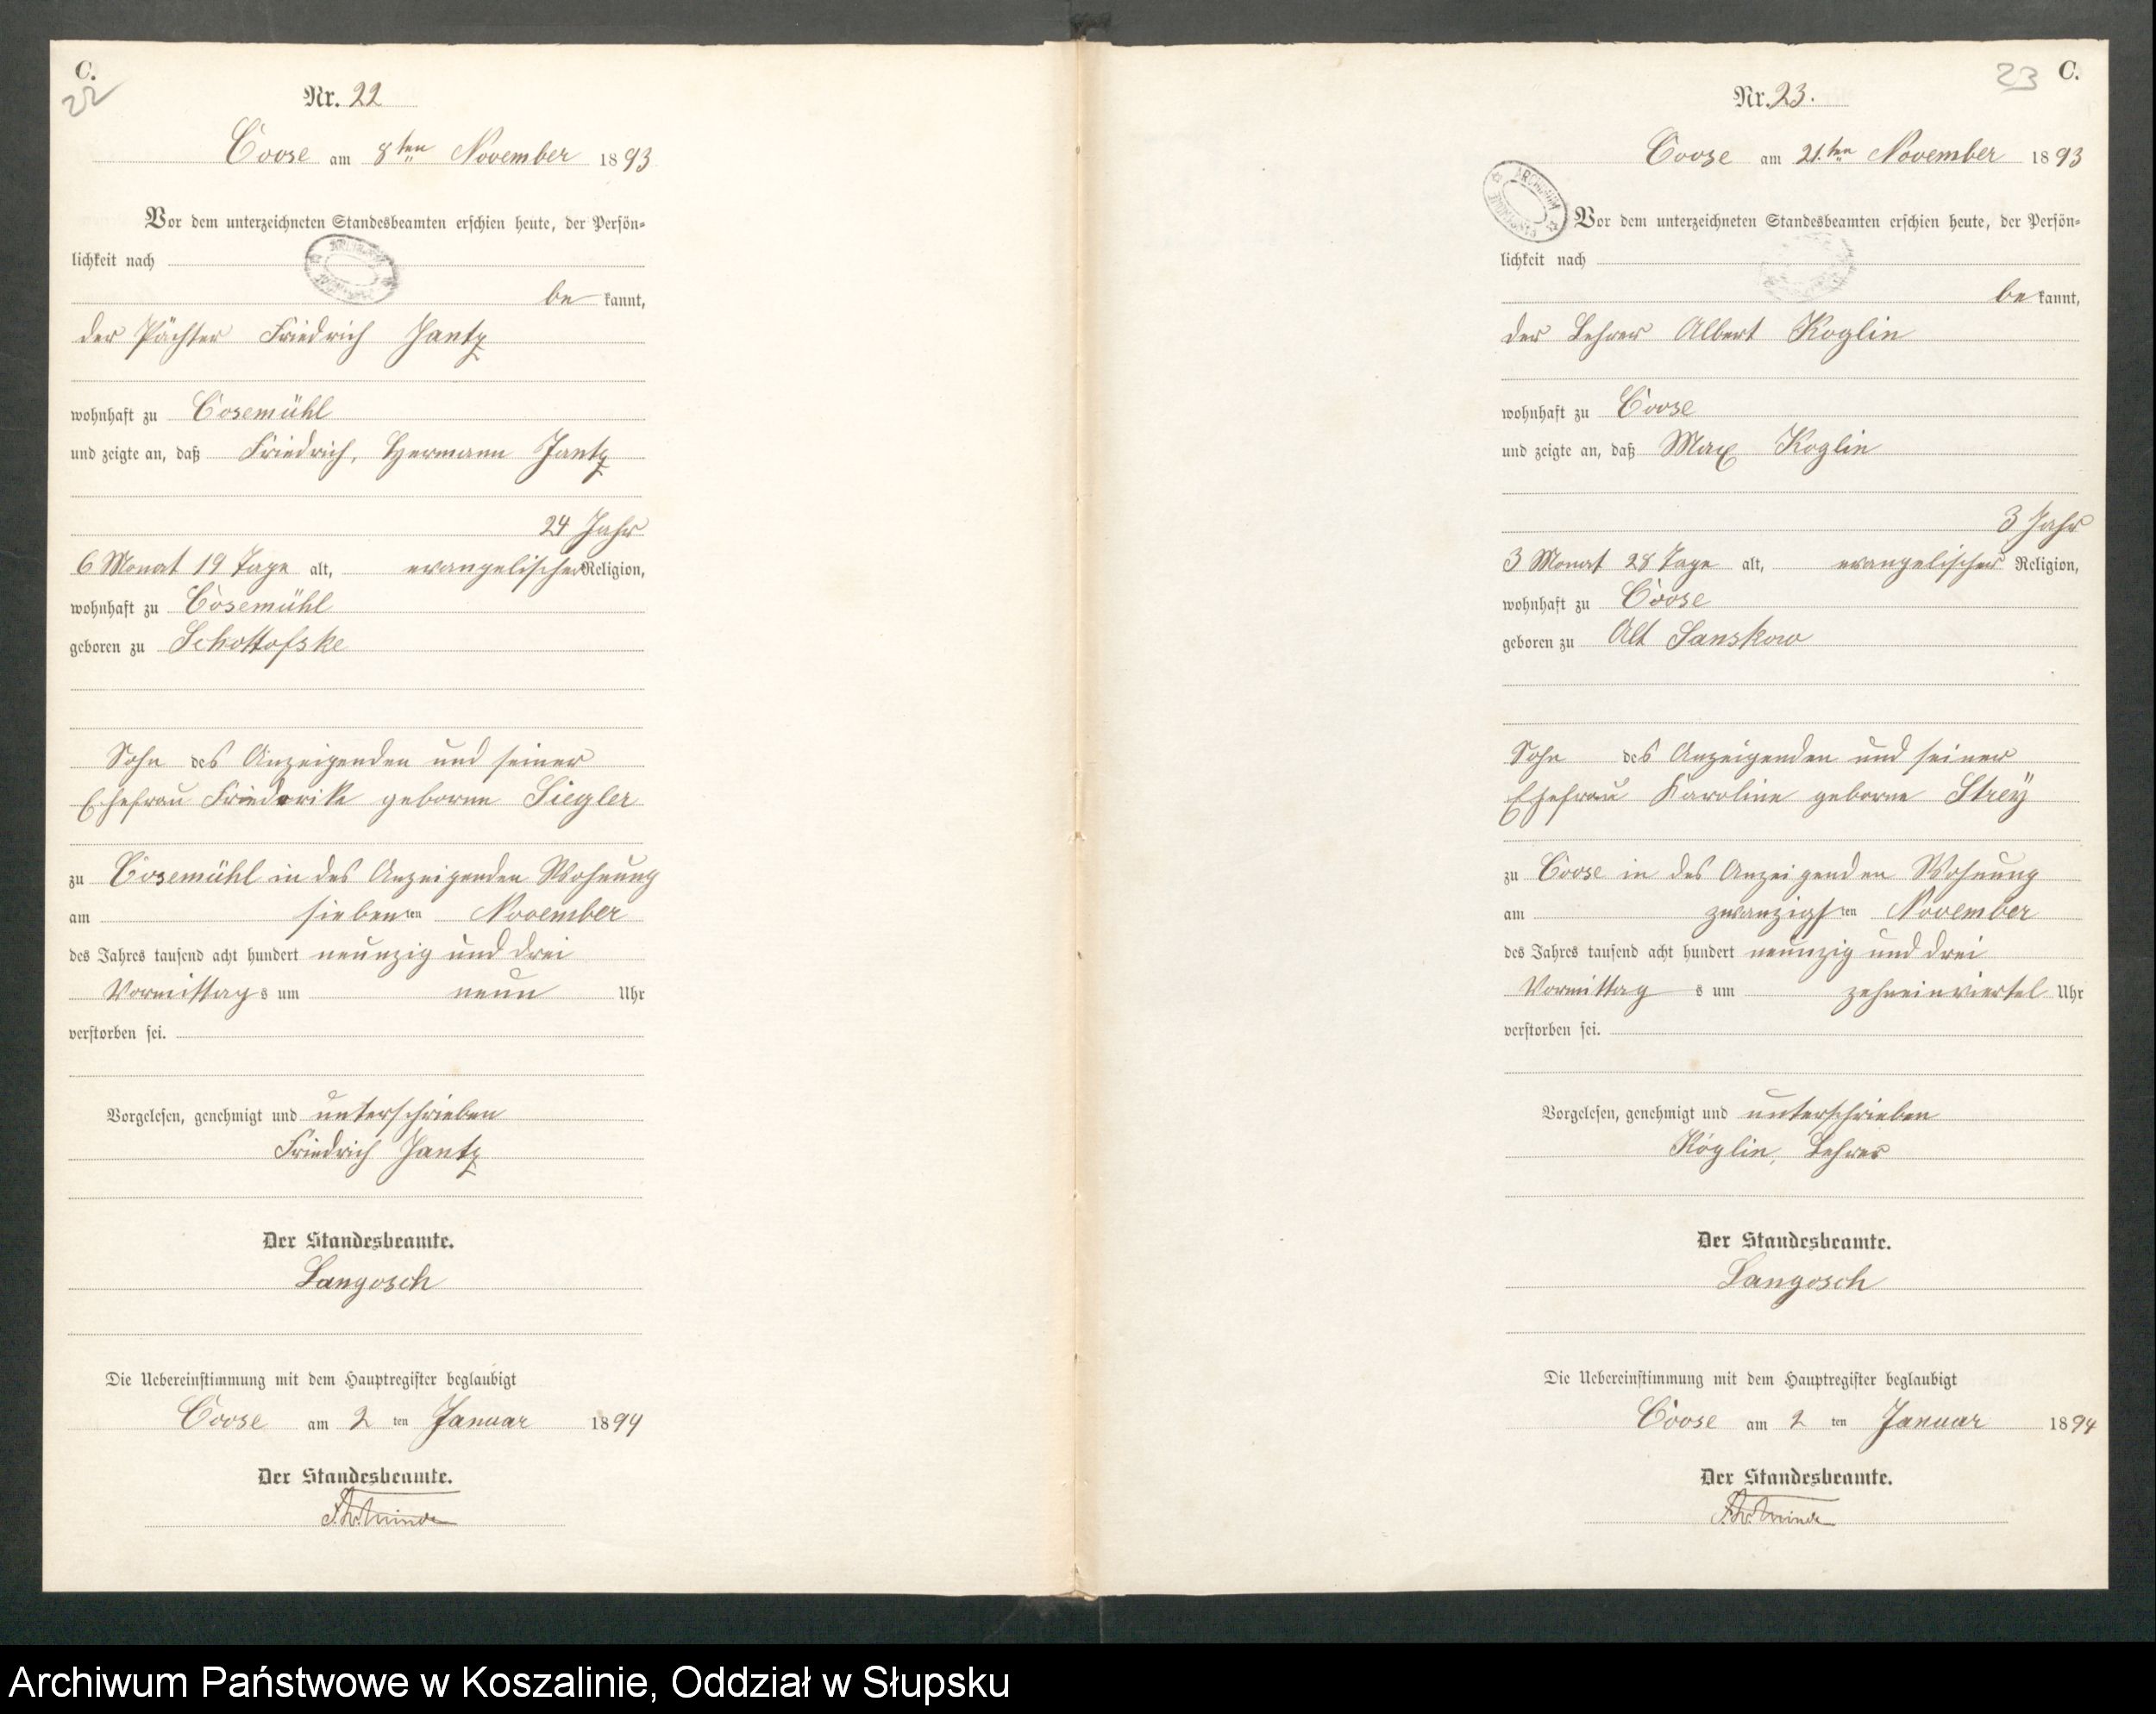 C.
22
Nr. 22
Coose am 8ten November 1893
Vor dem unterzeichneten Standesbeamten erschien heute, der Persön-
lichkeit nach
be kannt,
der Pächter Friedrich Jantz
wohnhaft zu Cosemühl
und zeigte an, daß Friedrich, Hermann Jantz
24 Jahr
6 Monat 19 Tage alt, evangelischer Religion,
wohnhaft zu Cosemühl
geboren zu Schottofske
Sohn des Anzeigenden und seiner
Ehefrau Friederike geborne Siegler
zu Cosemühl in des Anzeigenden Wohnung
am siebenten November
des Jahres tausend acht hundert neunzig und drei
Vormittags um neun Uhr
verstorben sei.
Vorgelesen, genehmigt und unterschrieben
Friedrich Jantz
Der Standesbeamte.
Langosch
Die Uebereinstimmung mit dem Hauptregister beglaubigt
Coose am 2 ten Januar 1894
Der Standesbeamte.
23 C.
Nr. 23.
Coose am 21.ten November 1893
ARCHIWUM
Vor dem unterzeichneten Standesbeamten erschien heute, der Persön-
lichkeit nach
be kannt,
der Lehrer Albert Koglin
wohnhaft zu Coose
und zeigte an, daß Max Koglin
3 Jahr
3 Monat 28 Tage alt, evangelischer Religion,
wohnhaft zu Coose
geboren zu Alt Sanskow
Sohn des Anzeigenden und seiner
Ehefrau Karoline geborne Strey
zu Coose in des Anzeigenden Wohnung
am zwanzigsten November
des Jahres tausend acht hundert neunzig und drei
Vormittag s um zehneinviertel Uhr
verstorben sei.
Vorgelesen, genehmigt und unterschrieben
Koglin, Lehrer
Der Standesbeamte.
Langosch
Die Uebereinstimmung mit dem Hauptregister beglaubigt
Coose am 2 ten Januar 1894
Der Standesbeamte.
Archiwum Państwowe w Koszalinie, Oddział w Słupsku